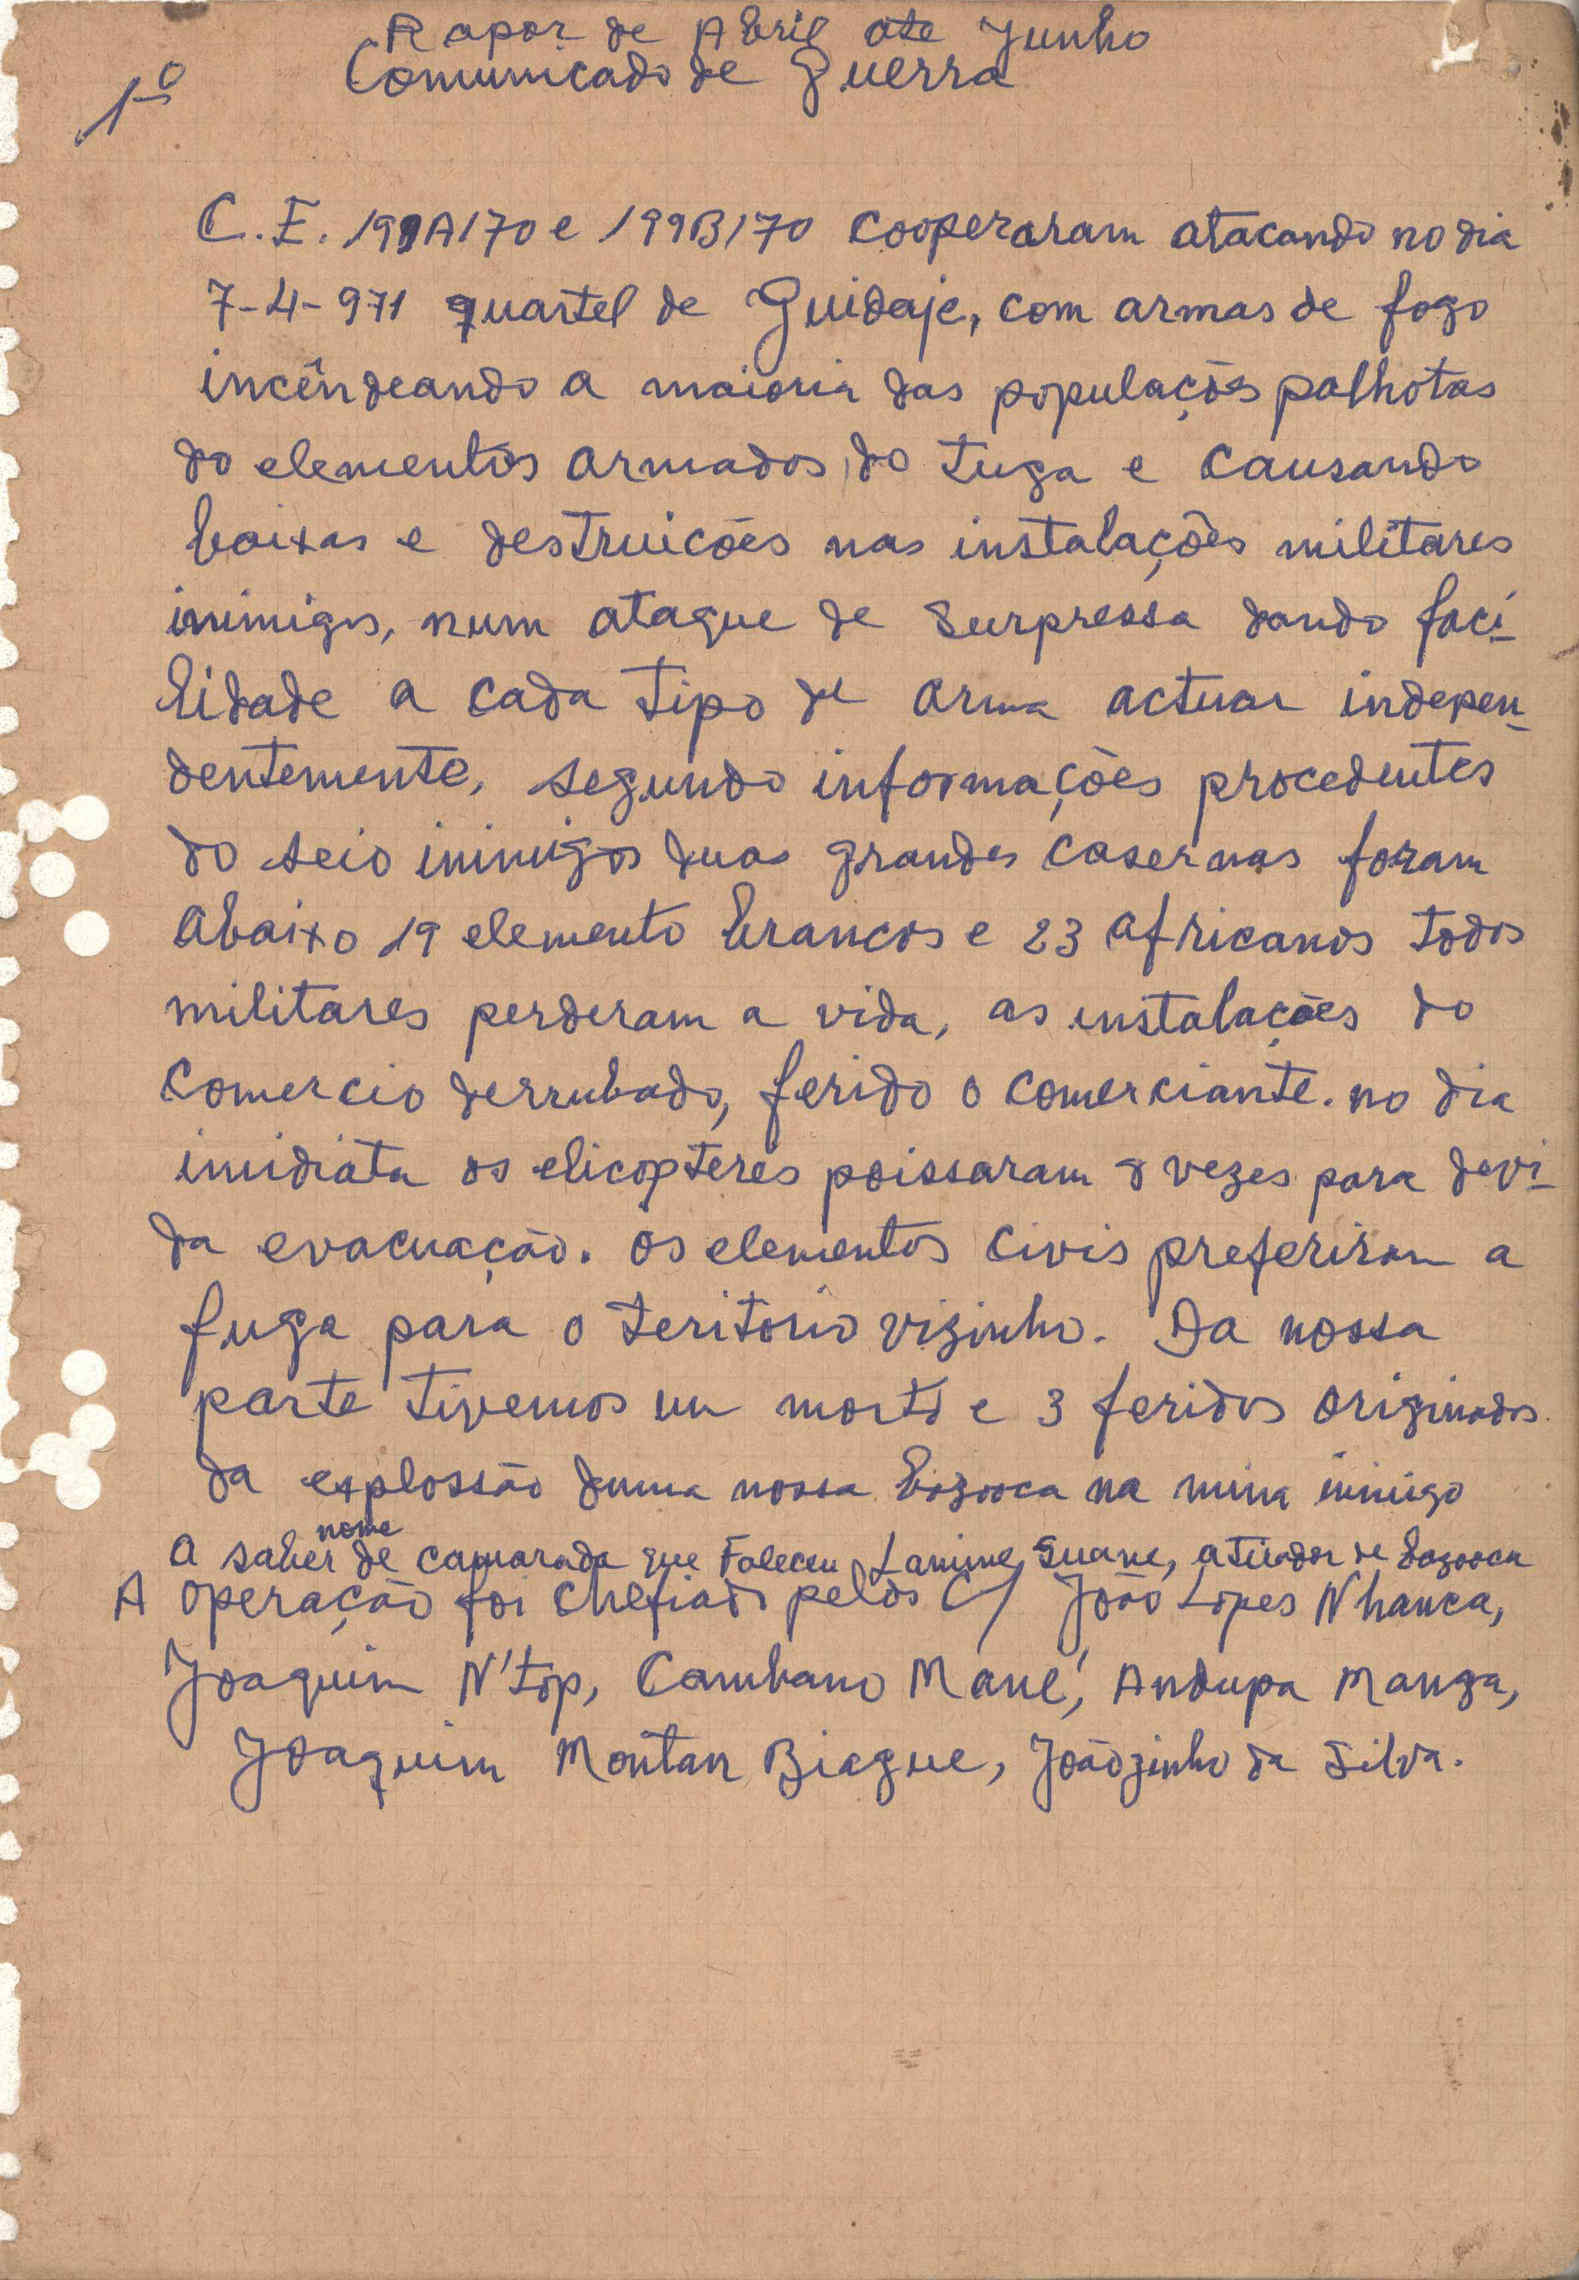 Rapor de Abril ate Junho
Comunicado de Guerra
1º
C.E. 199A/70 e 199B/70 cooperaram atacando no dia
7-4-971 quartel de Guidaje, com armas de fogo
incêndeando a maioria das populações palhotas
do elementos armados, do tuga e causando
baixas e destruicões nas instalações militares
inimigos, num ataque de surpressa dando faci-
lidade a cada tipo de arma actuar indepen-
dentemente, segundo informações procedentes
do seio inimigos duas grandes casernas foram
abaixo 19 elemento brancos e 23 africanos todos
militares perderam a vida, as instalações do
comercio derrubado, ferido o comerciante. no dia
imidiata os elicopteres poissaram 8 vezes para devi-
da evacuação. os elementos civis preferiram a
fuga para o teritorio vizinho. Da nossa
parte tivemos um morto e 3 feridos originados
da explossão duma nossa bazooca na mina inimigo
a saber nome de camarada que faleceu Lamine Suane, atirador de bazooca
A operação foi chefiado pelos C/ João Lopes Nhanca,
Joaquim N'top, Cambano Mané, Andupa Manga,
Joaquim Montan Biague, Joãozinho da Silva.